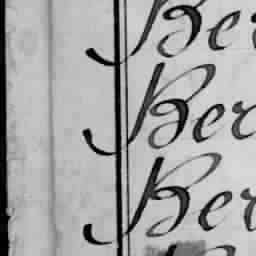 Ber
Ber
Ber